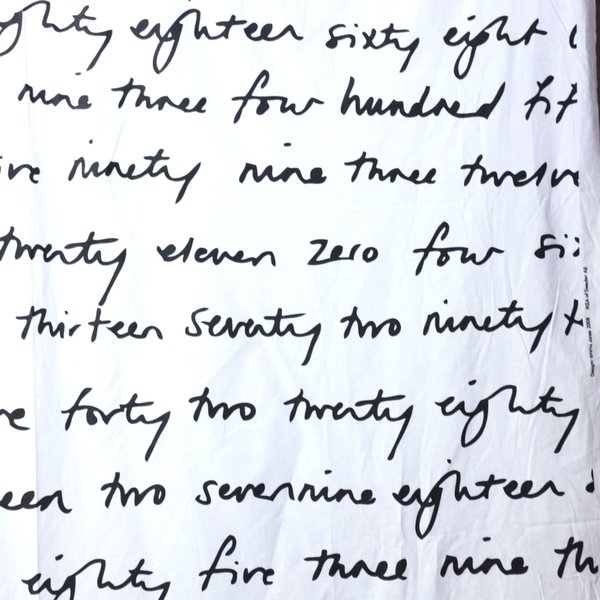 eighty eighteen sixty eight
nine three four hundred fif
ive ninety nine three twelve
twenty eleven zero four six
thirteen seventy two ninety t
re forty two twenty eighty
een two seven nine eighteen
eighty five three nine th
IKEA of Sweden AB